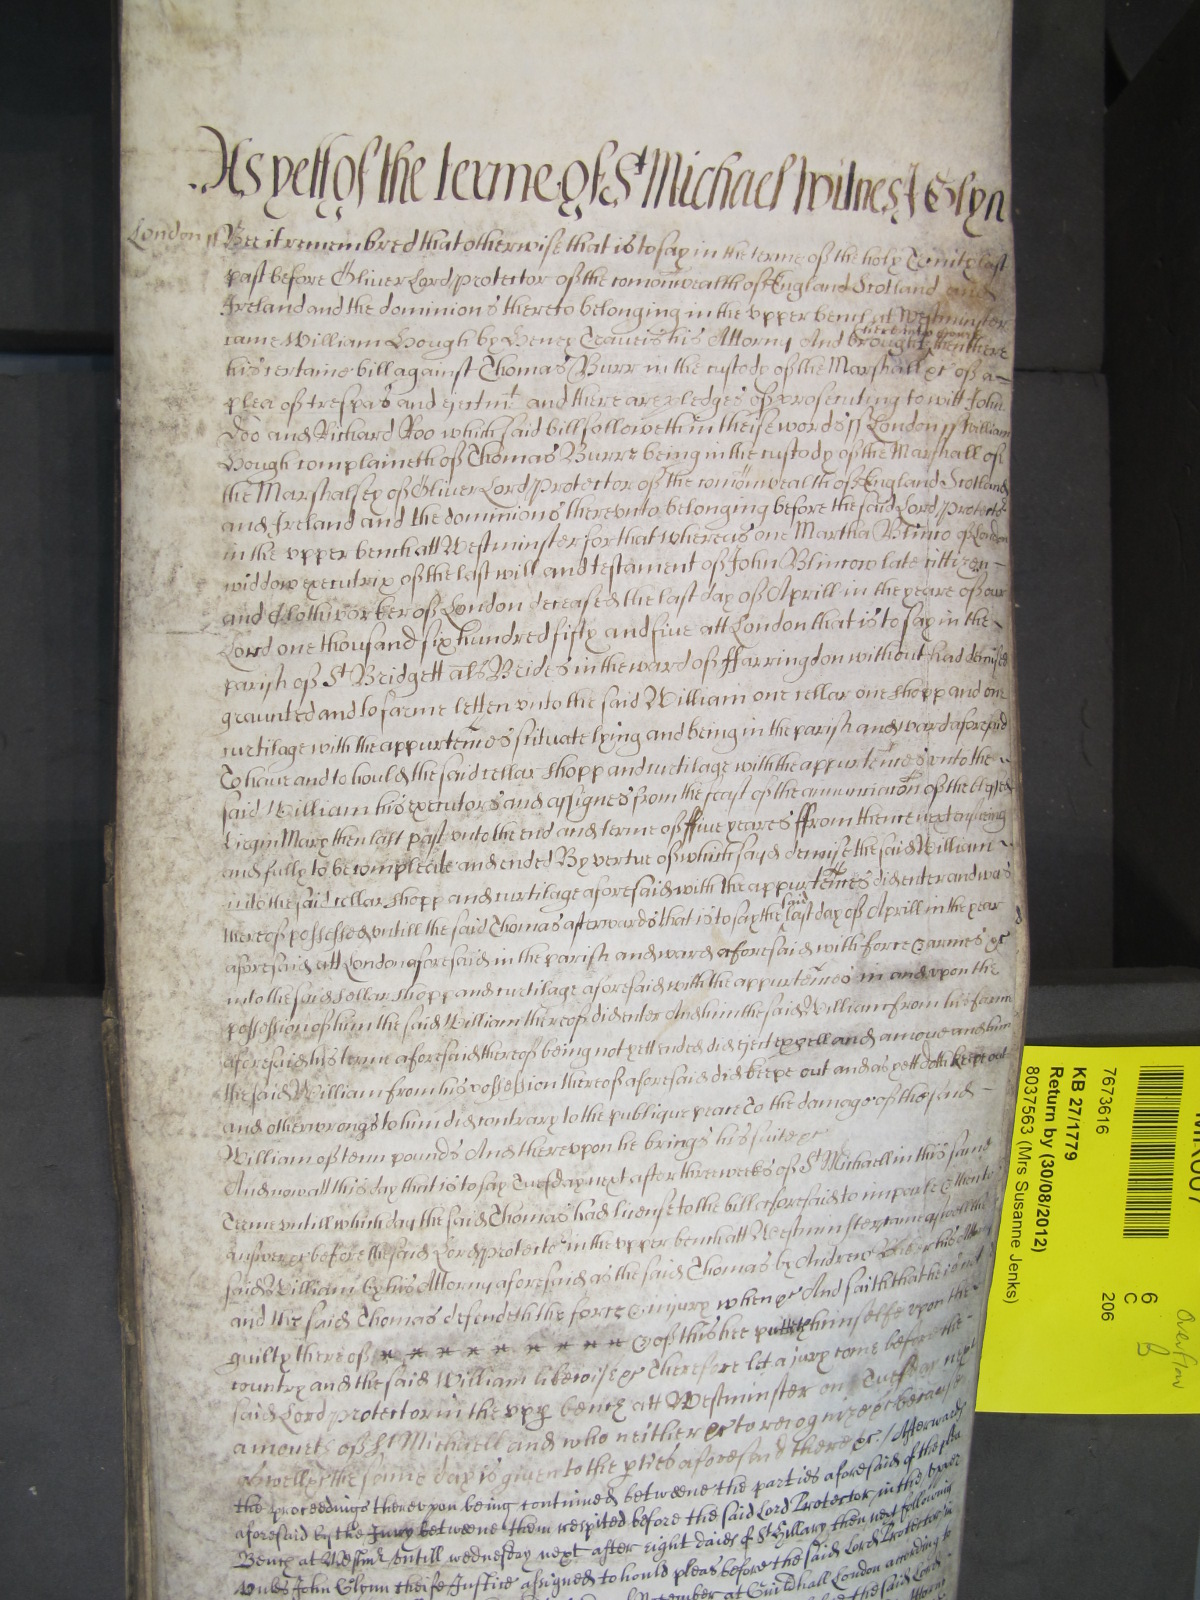 As yett of the terme of St Michael Witnes J Glyn
London // Bee it remembred that otherwise that is to say in the terme of the holy Trinity last
past before Oliver Lord protector of the comonwealth of England Scotland and
Ireland and the dominions thereto belonging in the upper bench at Westminster
came William Hough by Henry Travers his Attorny And brought then there
his certaine bill against Thomas Burr in the custody of the Marshall &c of a
plea of trespas and ejectmt and there are pledges of prosecuting to witt John
Doo and Richard Roo which said bill followeth in theise words // London // William
Hough complaineth of Thomas Burr being in the custody of the Marshall of
the Marshalsey of Oliver Lord protector of the comonwealth of England Scotland
and Ireland and the dominions thereunto belonging before the said Lord protector
in the upper bench att Westminster for that whereas one Martha Blinco of London
widdow executrix of the last will and testament of John Blincow late cittizen
and Clothworker of London deceased the last day of Aprill in the yeare of our
Lord one thousand six hundred fifty and five att London that is to say in the
parish of St Bridgett als Brides in the ward of ffarringdon without had demised
graunted and to farme letten unto the said William one cellar one shopp and one
curtilage with the appurtences scituate lying and being in the parish and ward aforesaid
To have and to hould the said cellar shopp and curtilage with the appurtences unto the
said William his executors and assignes from the feast of the annunciacon of the blessed
Virgin Mary then last past unto the end and terme of ffive yeares ffrom thence next ensueing
and fully to be compleate and ended By vertue of which sayd demise the said William
into the said cellar shopp and curtilage aforesaid with the appurtences did enter and was
thereof possessed untill the said Thomas afterwards that is to say the said last day of Aprill in the year
aforesaid att London aforesaid in the parish and ward aforesaid with force & armes &c
into the said cellar shopp and curtilage aforesaid with the appurtences in and upon the
possession of him the said William thereof did enter And him the said William from his farme
aforesaid his terme aforesaid thereof being not yett ended did eject expell and amove and him
the said William from his possession thereof aforesaid did keepe out and as yett doth keepe out
and other wrongs to him did contrary to the publique peace To the damage of the said
William of tenn pounds And thereupon he brings his suite &c
And now att this day that is to say Tuesday next after three weekes of St Michaell in this same
Terme untill which day the said Thomas had license to the bill aforesaid to imparle & then to
answer &c before the said Lord protector in the upper bench att Westminster came aswell the
said William by his Attorny aforesaid as the said Thomas by Andrew his Attorny
and the said Thomas defendeth the force & injury when &c And saith that he is not
guilty thereof & of this hee putteth himselfe upon the
country and the said William likewise &c Therefore let a jury come before the
said Lord protector in the upp bench att Westminster on Tuesday next
a moneth of St Michaell and who neither &c to recognize &c because
aswell &c the same day is given to the pties aforesaid there &c / Afterwards
the proceedings thereupon being continued betweene the parties aforesaid of the plea
aforesaid by the Jury betweene them respited before the said Lord Protector in the upper
Bench at Westmr untill wednesday next after eight daies of St Hillary then next following
unles John Glynn cheife Justice assigned to hould pleas before the said Lord Protector in
November at Guildhall London according to
7673616
KB 27/1779
Return by (30/08/2012)
8037563 (Mrs Susanne Jenks)
206
6
C
Overflow
B